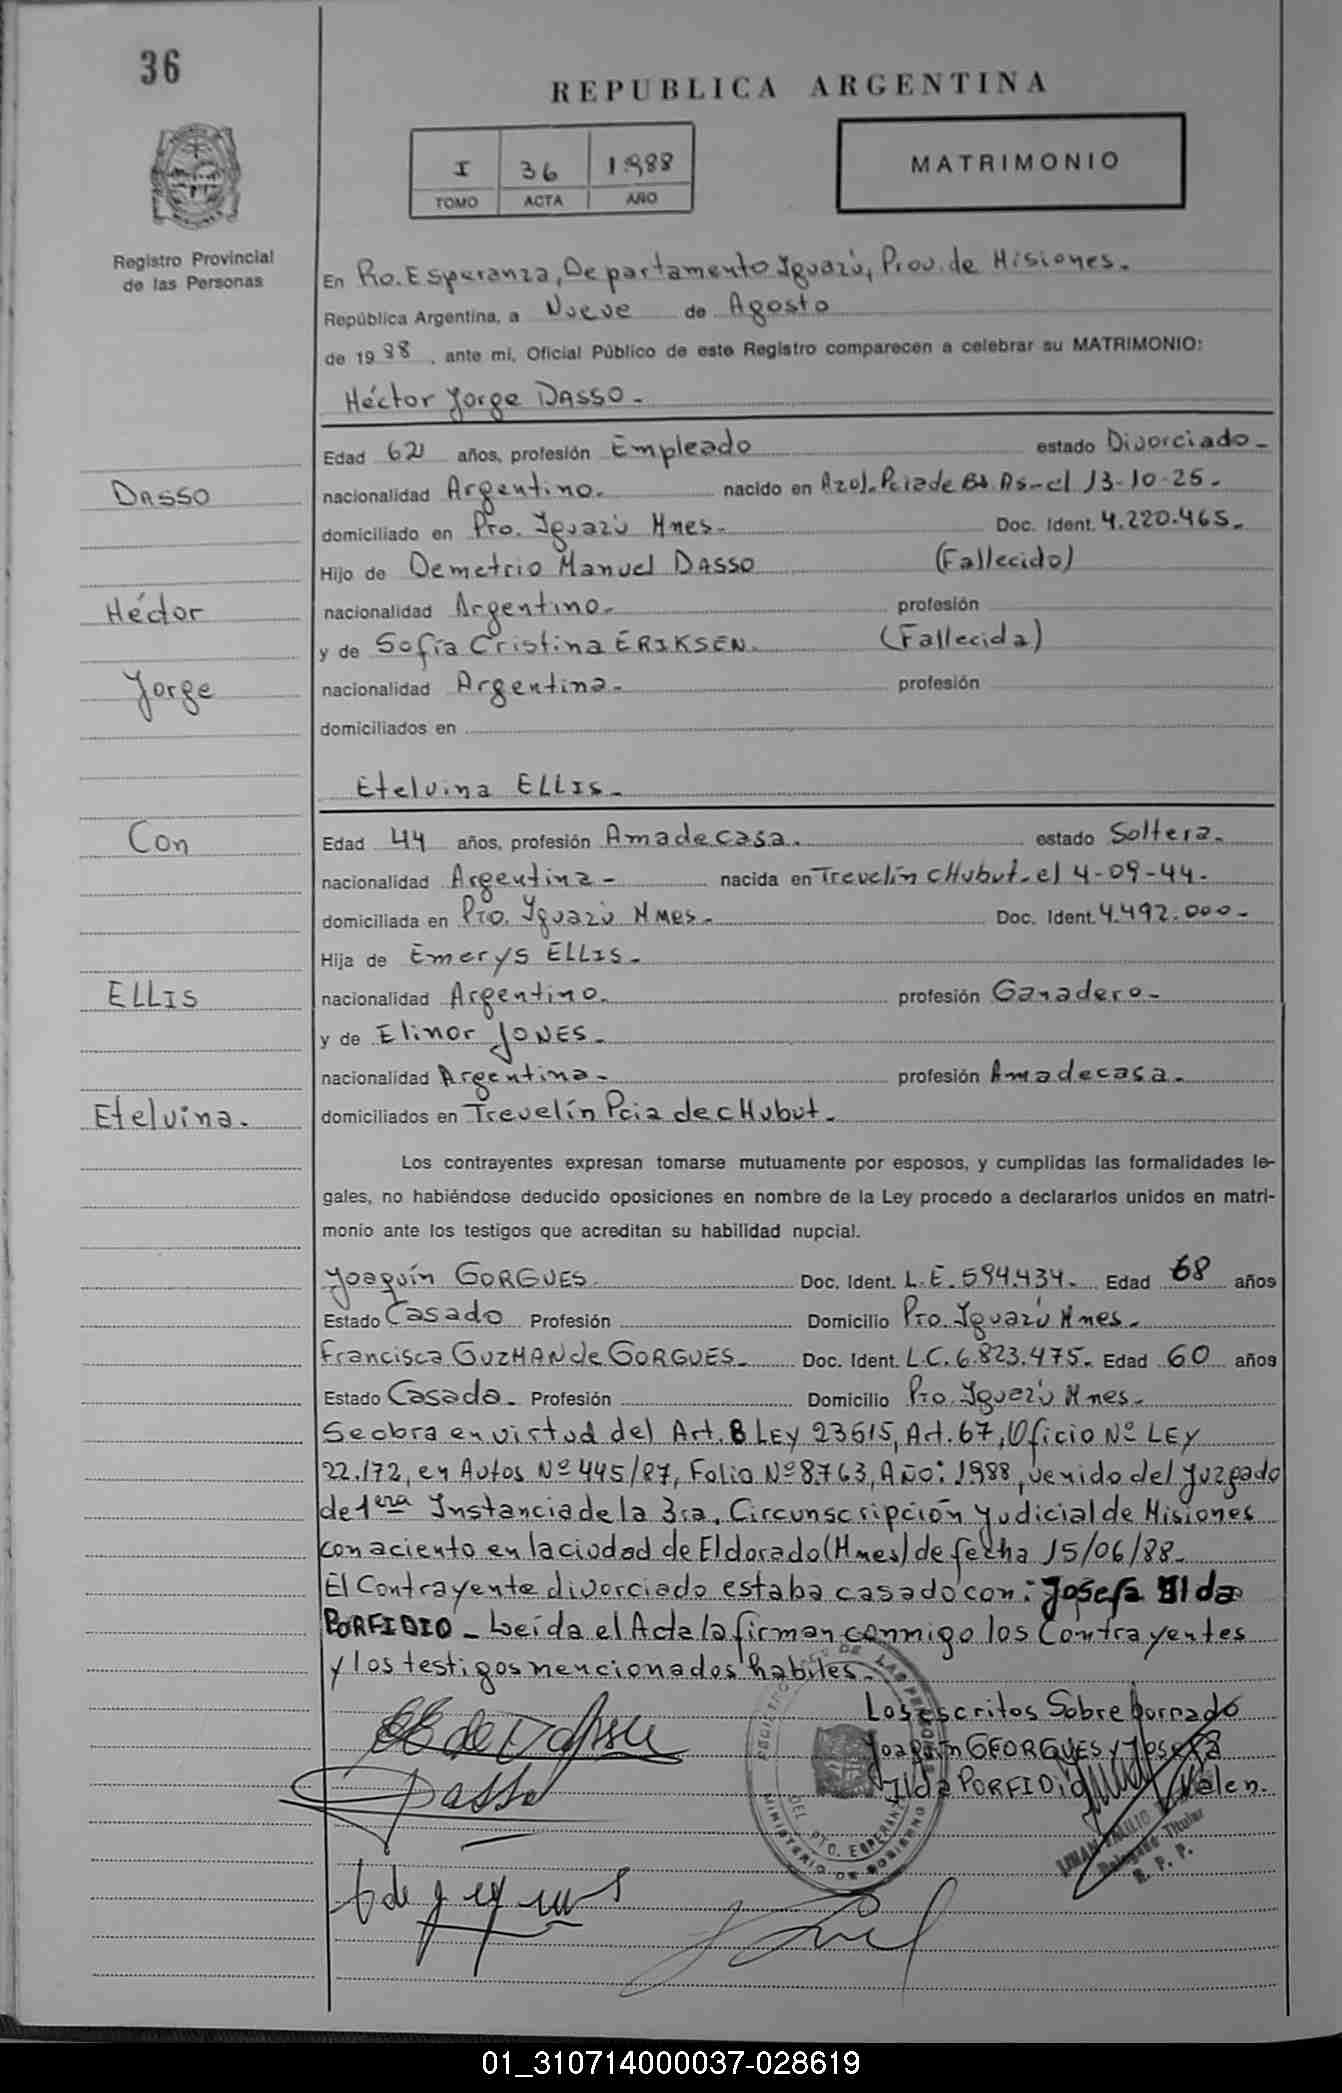 36
REPUBLICA ARGENTINA
I 36 1988
TOMO ACTA AÑO
MATRIMONIO
Registro Provincial
de las Personas
En Pto. Esperanza, Departamento Iguazú, Prov. de Misiones.
República Argentina, a Nueve de Agosto
de 1988, ante mí, Oficial Público de este Registro comparecen a celebrar su MATRIMONIO:
Héctor Jorge DASSO.
Edad 62 años, profesión Empleado estado Divorciado-
DASSO
nacionalidad Argentino. nacido en Azul. Pcia de Bs. As-el 13-10-25.
domiciliado en Pto. Iguazú Mnes. Doc. Ident. 4.220.465.
Hijo de Demetrio Manuel DASSO (Fallecido)
Héctor
nacionalidad Argentino. profesión
y de Sofía Cristina ERIKSEN. (Fallecida)
Jorge
nacionalidad Argentina. profesión
domiciliados en
Etelvina ELLIS.
Con
Edad 44 años, profesión Ama de casa. estado Soltera.
nacionalidad Argentina- nacida en Trevelín cHubut. el 4-09-44.
domiciliada en Pto. Iguazú Mnes. Doc. Ident. 4.492.000-
Hija de Emerys ELLIS.
ELLIS
nacionalidad Argentino. profesión Ganadero-
y de Elinor JONES.
nacionalidad Argentina- profesión Ama de casa.
Etelvina.
domiciliados en Trevelín Pcia de cHubut.
Los contrayentes expresan tomarse mutuamente por esposos, y cumplidas las formalidades le-
gales, no habiéndose deducido oposiciones en nombre de la Ley procedo a declararlos unidos en matri-
monio ante los testigos que acreditan su habilidad nupcial.
Joaquín GORGUES Doc. Ident. L.E. 594.434. Edad 68 años
Estado Casado Profesión Domicilio Pto. Iguazú Mnes.
Francisca GUZMAN de GORGUES. Doc. Ident. L.C. 6.823.475. Edad 60 años
Estado Casada. Profesión Domicilio Pto. Iguazú Mnes.
Se obra en virtud del Art. 8 LEY 23515, Art. 67, Oficio Nº LEY
22.172, en Autos Nº 445/87, Folio Nº 8763, AÑO: 1988, venido del Juzgado
de 1era Instancia de la 3ra. Circunscripción Judicial de Misiones
con aciento en la ciudad de Eldorado (Mnes) de fecha 15/06/88.
El Contrayente divorciado estaba casado con: Josefa Ilda
PORFIDIO - Leída el Acta la firman conmigo los Contrayentes
y los testigos mencionados habiles.
Los escritos Sobre borrado
Joaquín GEORGUES y Josefa
Ilda PORFIDIO Valen.
EE de Dasso
Dasso
MINISTERIO DE GOBIERNO
DEL. PTO. ESPERANZA
Delegado Titular
R. P. P.
01_310714000037-028619